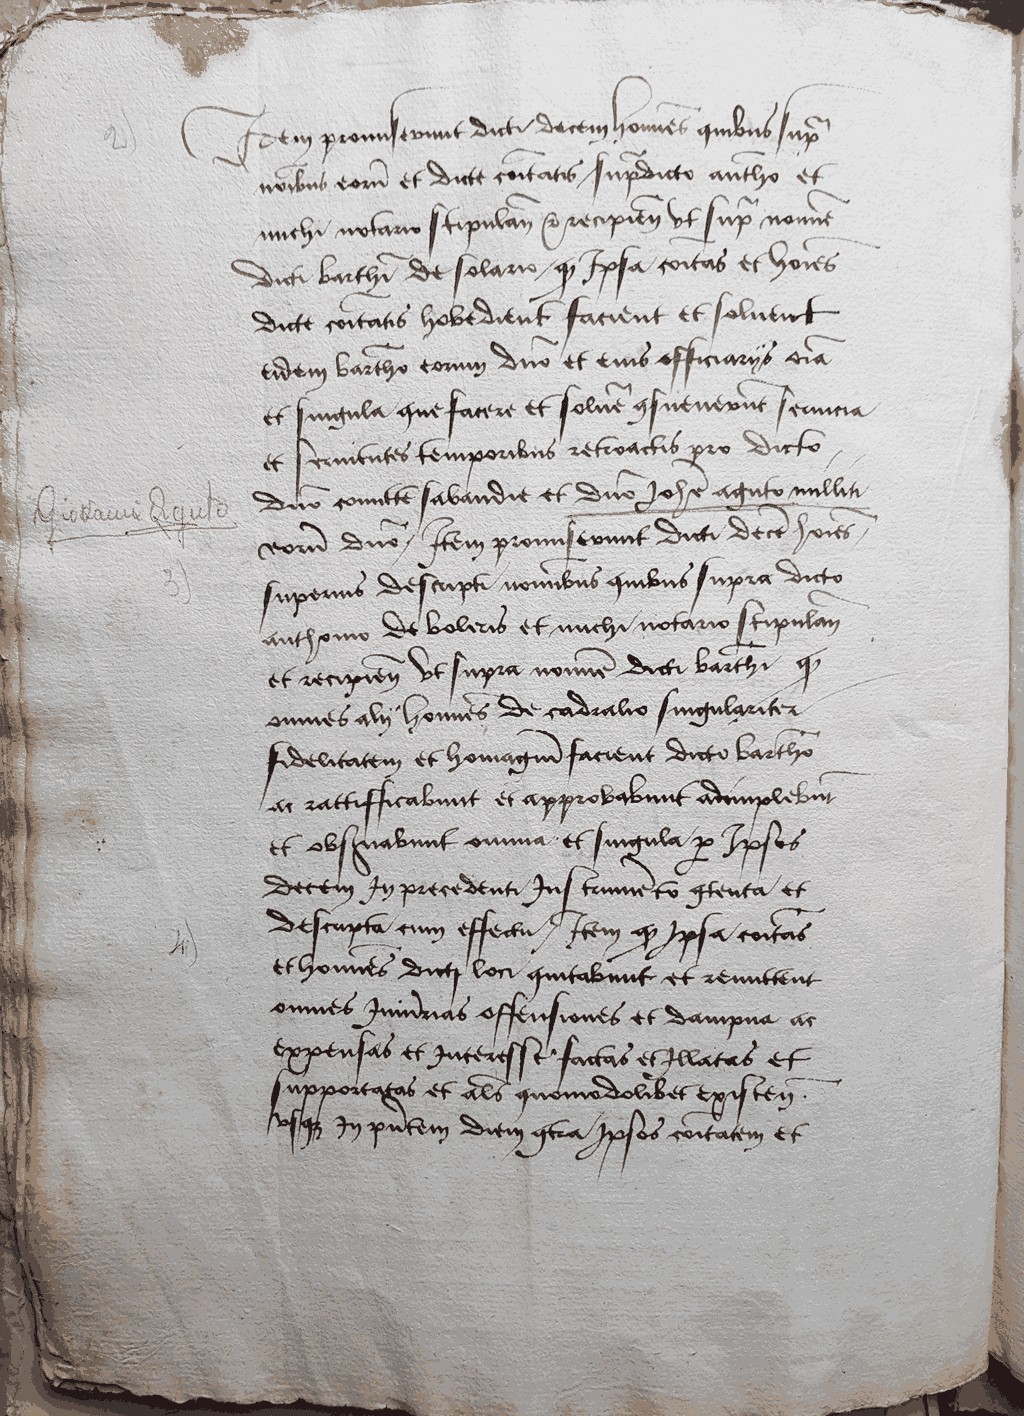 2)
Item promiserunt dicti decem homīes quibus sup̄
nōibus eorū et dicte cōitatis sup̄dicto anthō et
michi notario stipulan̄ & recipien̄ ut sup̄ nomīe
dicti barthī de solario q̄ Ipsa cōitas et hoīes
dicte cōitatis hobedient facient et solvent
eidem barthō eorum dn̄o et eius officiarijs oīa
et singula que facere et solvē ɔsueverūt servicia
et servitutes temporibus retroactis pro dicto
dn̄o comitte sabaudie et dn̄o Johē aguto milliti
Giovanni Aguto
eorū dn̄o / Item promiserunt dicti decē hoīes
3)
superius descripti nomībus quibus supra dicto
anthonio de boleris et michi notario stipulan̄
et recipien̄ ut supra nomīe dicti barthī q̄
omnes alij homīes de cadralio singulariter
fidelitatem et homagiū facient dicto barthō
ac rattifficabunt et approbabunt adimplebūt
et obs̄vabunt omnia et singula p̱ Ipsos
decem In precedenti Instrumēto ɔtenta et
descripta cum effectu / Item q̄ Ipsa cōitas
4)
et homīes dicti loci quitabunt et remittent
omnes Iniūrias offensiones et dampna ac
expensas et Interesse factas et Illatas et
supportatas et al̄s quomodolibet existen̄
usq̨ In pn̄tem diem ɔtra Ipsos cōitatem et